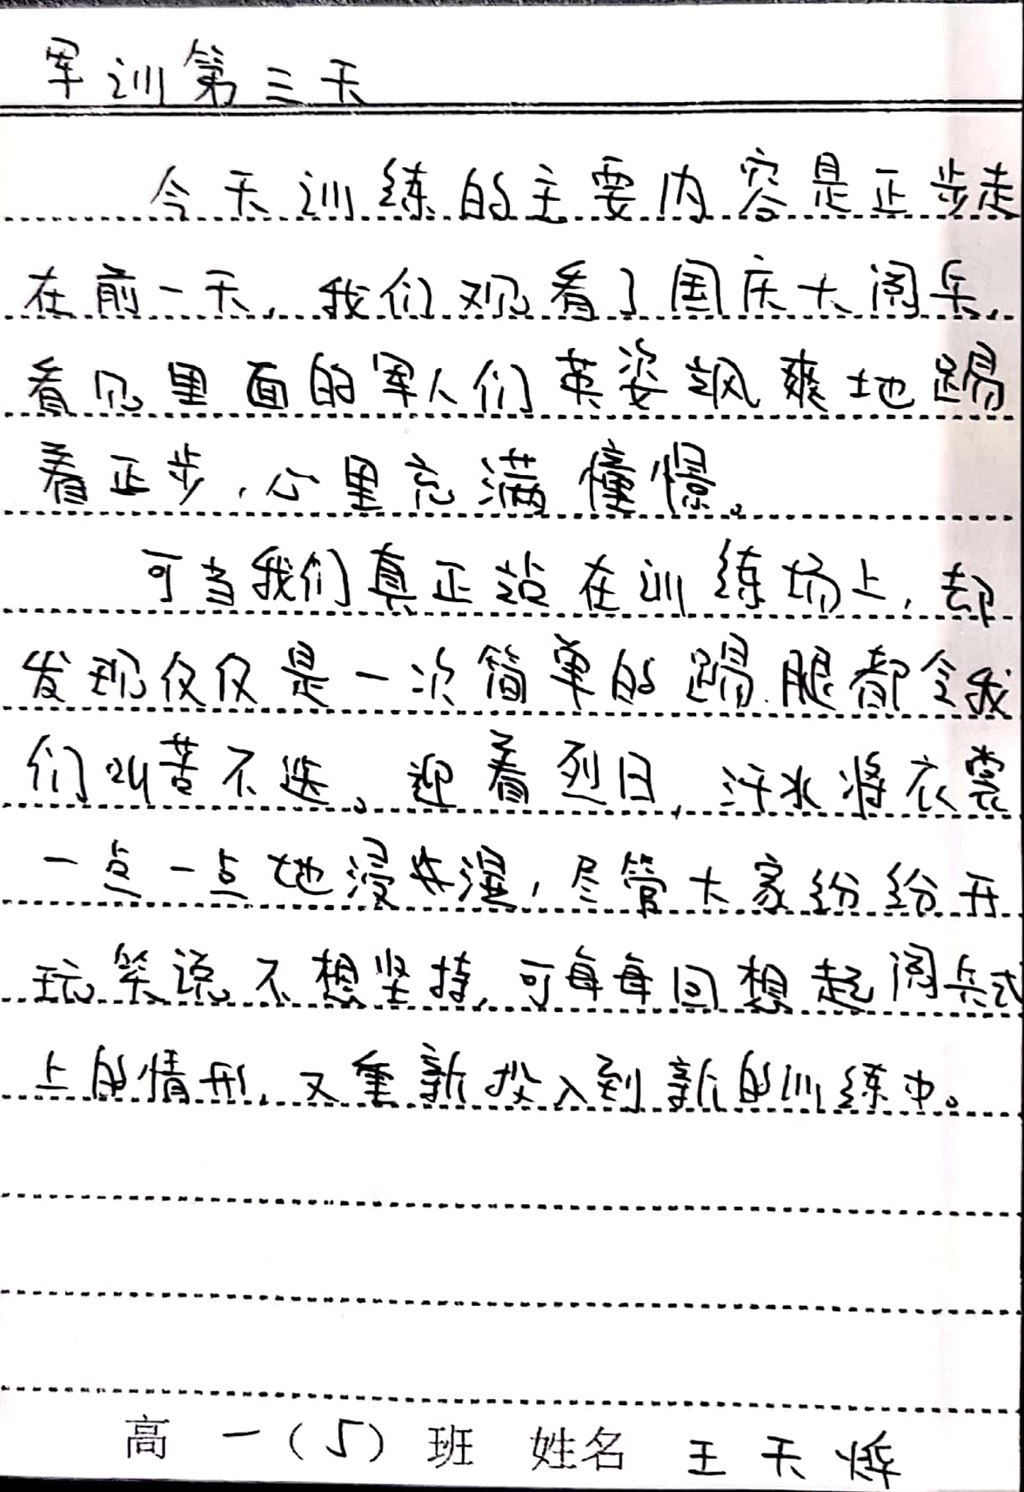 军训第三天
今天训练的主要内容是正步走
在前一天,我们观看了国庆大阅兵,
看见里面的军人们英姿飒爽地踢
着正步,心里充满憧憬。
可当我们真正站在训练场上,却
发现仅仅是一次简单的踢腿都令我
们叫苦不迭。迎着烈日,汗水将衣裳
一点一点地浸湿,尽管大家纷纷开
玩笑说不想坚持,可每每回想起阅兵式
上的情形,又重新投入到新的训练中。
高一(5)班 姓名 王天烨